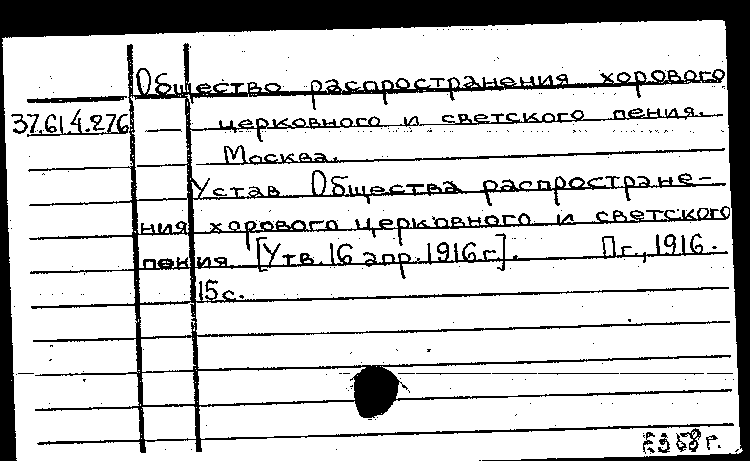 Общество распространения хорового
37.61.4.276 — церковного и светского пения.
Москва.
Устав Общества распростране-
ния хорового церковного и светского
пения. [Утв. 16 апр. 1916 г.]. Пг., 1916.
15 с.